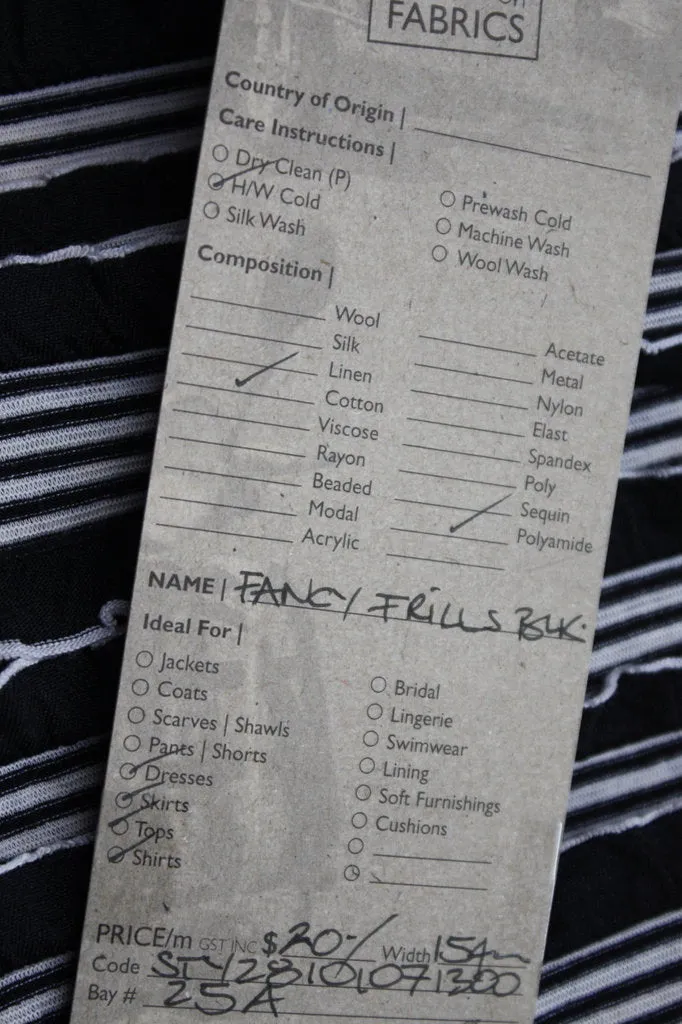 FABRICS
Country of Origin |
Care Instructions |
Dry Clean (P)
H/W Cold
Silk Wash
Prewash Cold
Machine Wash
Wool Wash
Composition |
Wool
Silk
Linen
Cotton
Viscose
Rayon
Beaded
Modal
Acrylic
Acetate
Metal
Nylon
Elast
Spandex
Poly
Sequin
Polyamide
NAME | FANCY FRILLS BLK.
Ideal For |
Jackets
Coats
Scarves | Shawls
Pants | Shorts
Dresses
Skirts
Tops
Shirts
Bridal
Lingerie
Swimwear
Lining
Soft Furnishings
Cushions
PRICE/m GST INC $20-/ Width 154m
Code
Bay # 25A